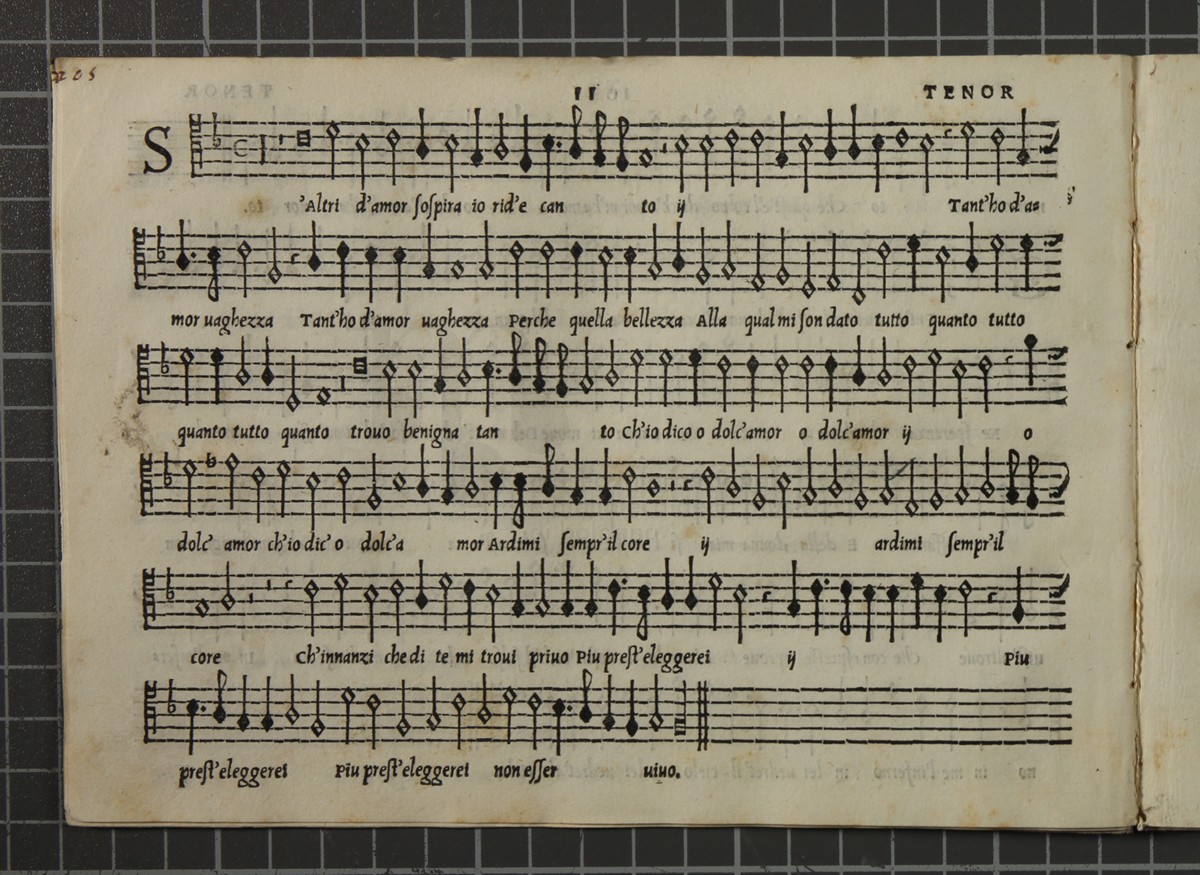 11 TENOR
S
'Altri d'amor ſoſpira io rid'e can to ij Tant'ho d'a=
mor uaghezza Tant'ho d'amor uaghezza Perche quella bellezza Alla qual mi ſon dato tutto quanto tutto
quanto tutto quanto trouo benigna tan to Ch'io dico o dolc'amor o dolc'amor ij o
dolc' amor ch'io dic' o dolc'a mor Ardimi ſempr'il core ij ardimi ſempr'il
core Ch'innanzi che di te mi troui priuo Piu preſt'eleggerei ij Piu
preſt'eleggerei Piu preſt'eleggerei non eſſer uiuo.